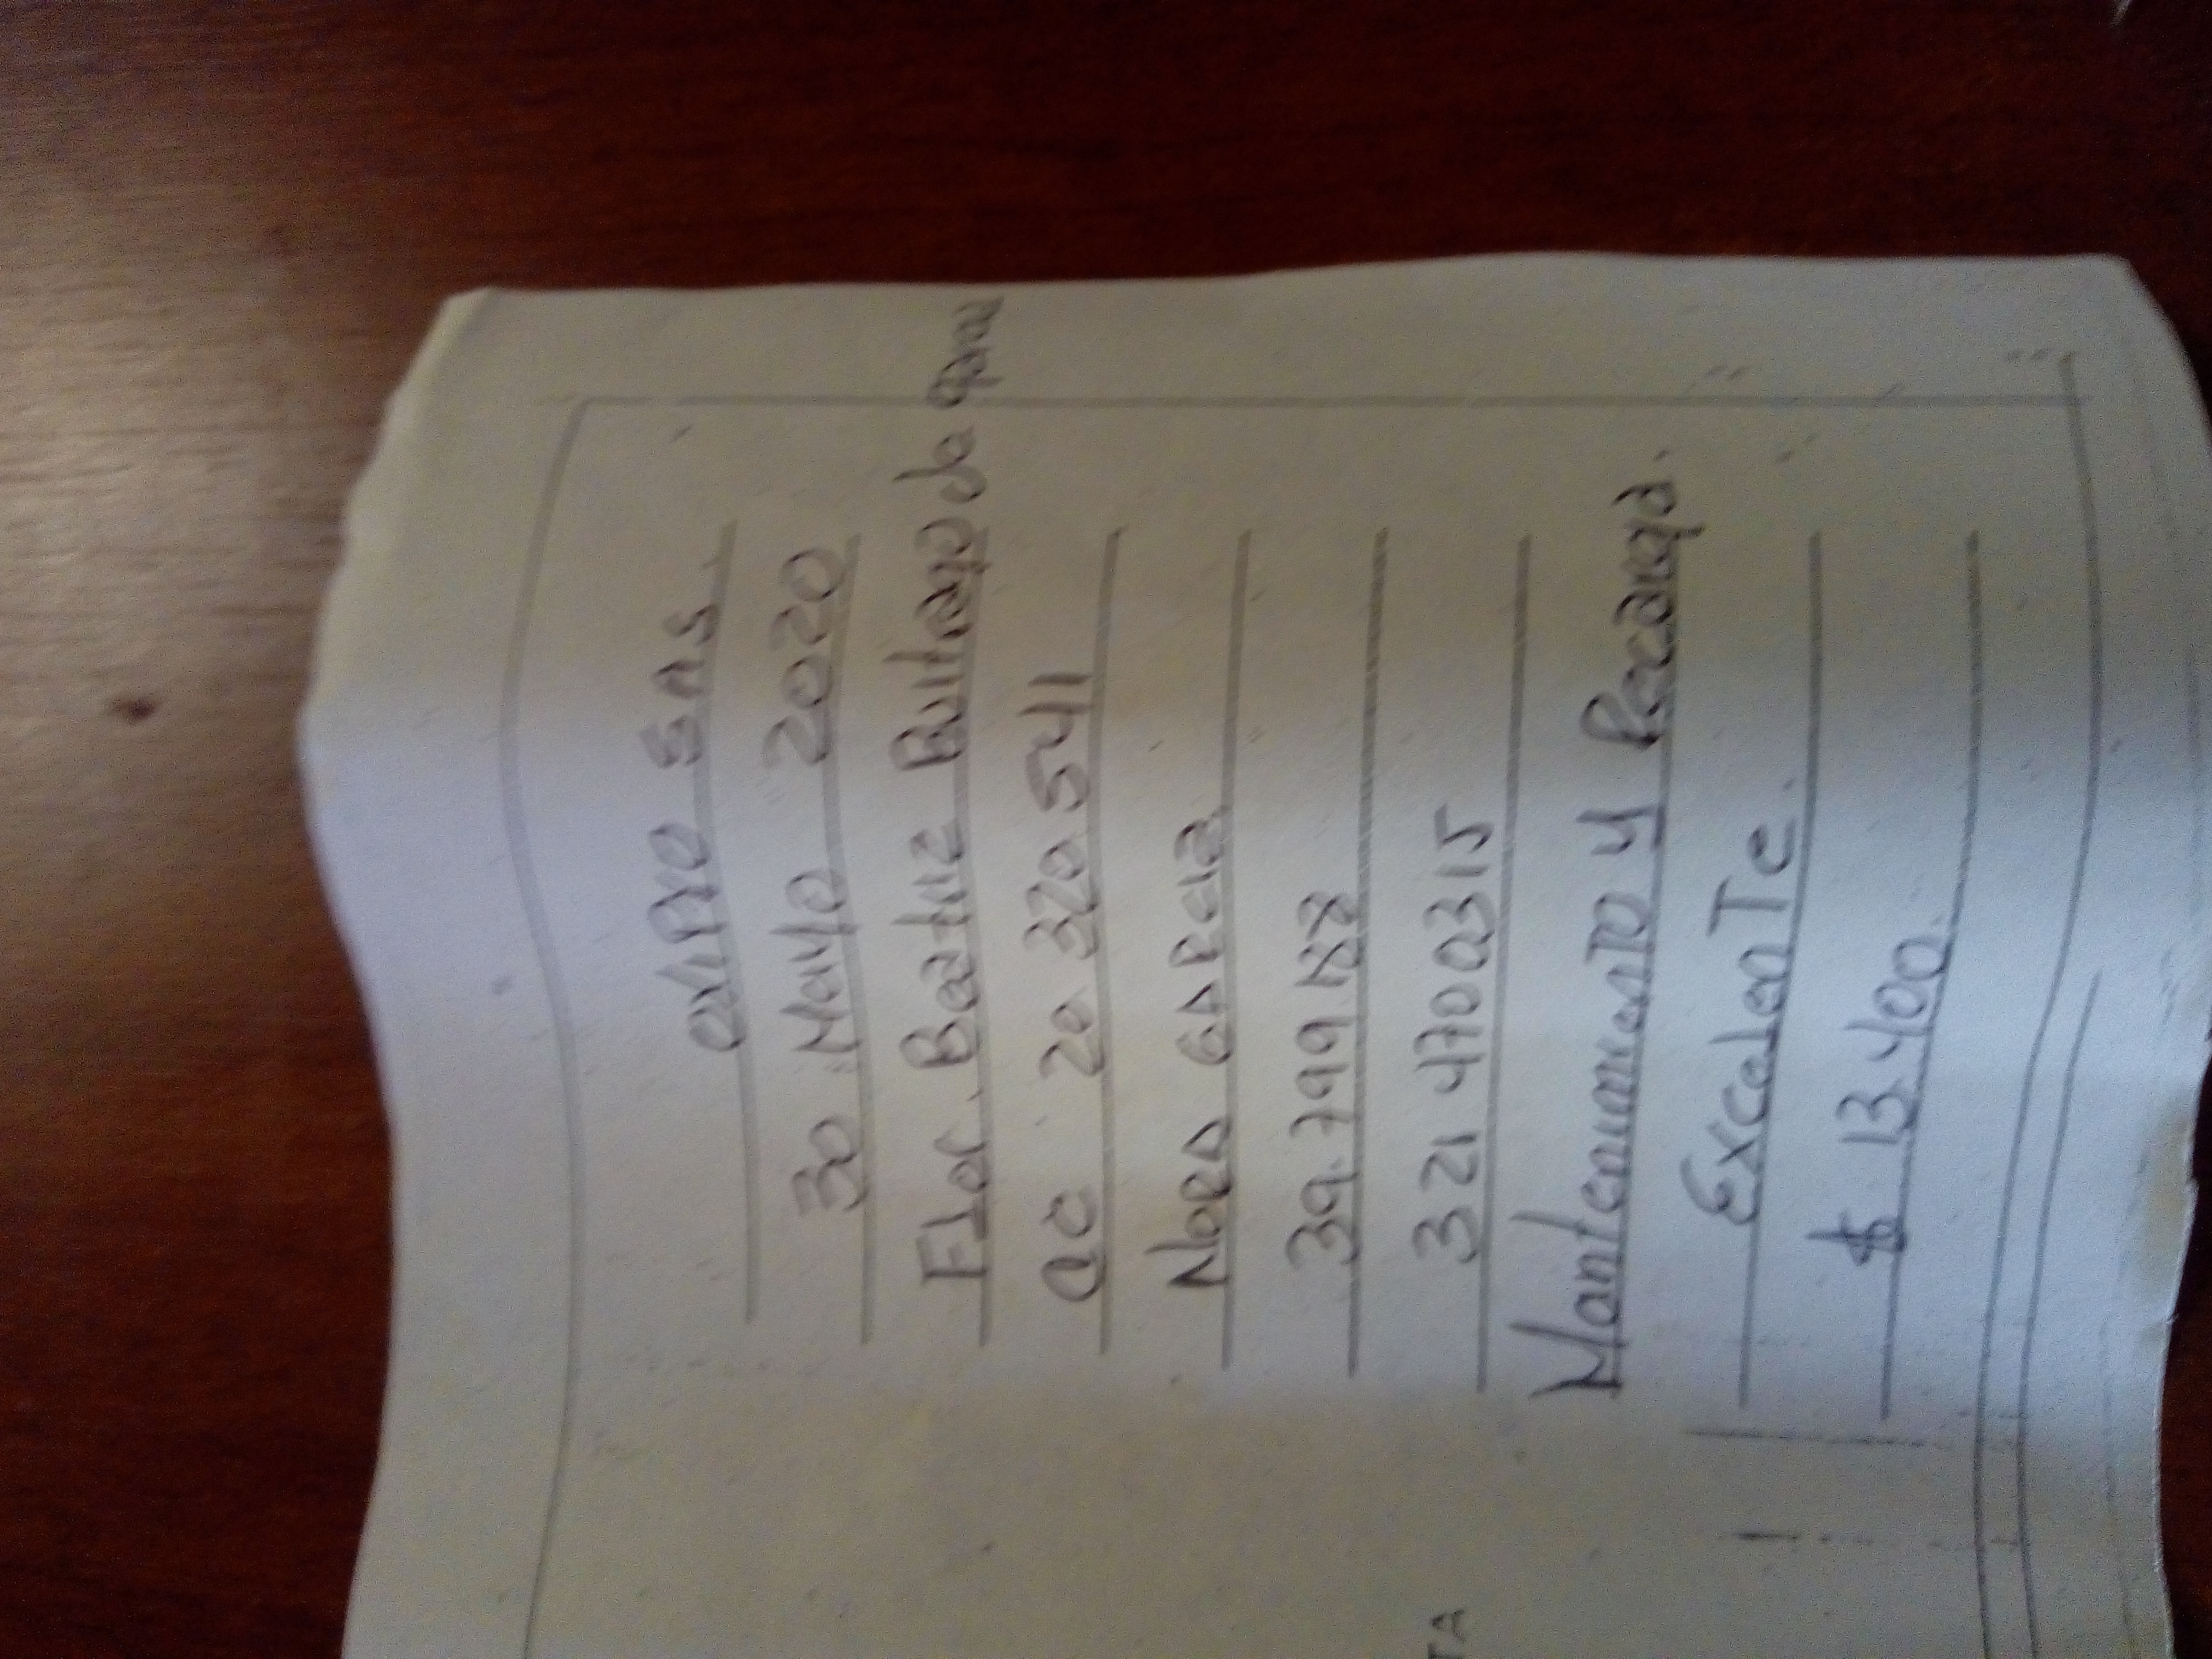 exipro SAS.
30 Mayo 2020
Flor. Beatriz Buitrago de
CC 20 320 5411
Nora GARCia.
39.799.188
321 4700315
Mantenimiento y Recarga.
ExcelenTe.
$ 13.400.
TA